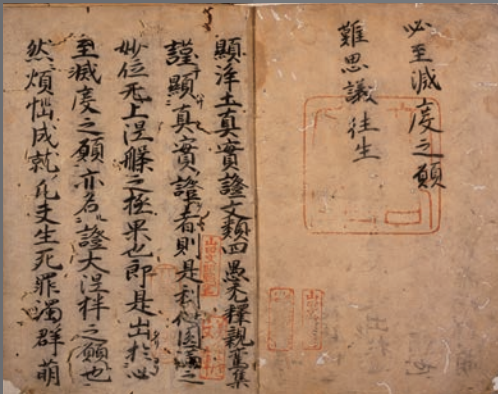 必至滅度之願
難思議往生
顯浄土真實證文類四 愚禿釋親鸞集
謹顯真實證者則是利他圓滿之
妙位无上涅槃之極果也即是出於必
至滅度之願亦名證大涅槃之願也
然煩惱成就凡夫生死罪濁群萌